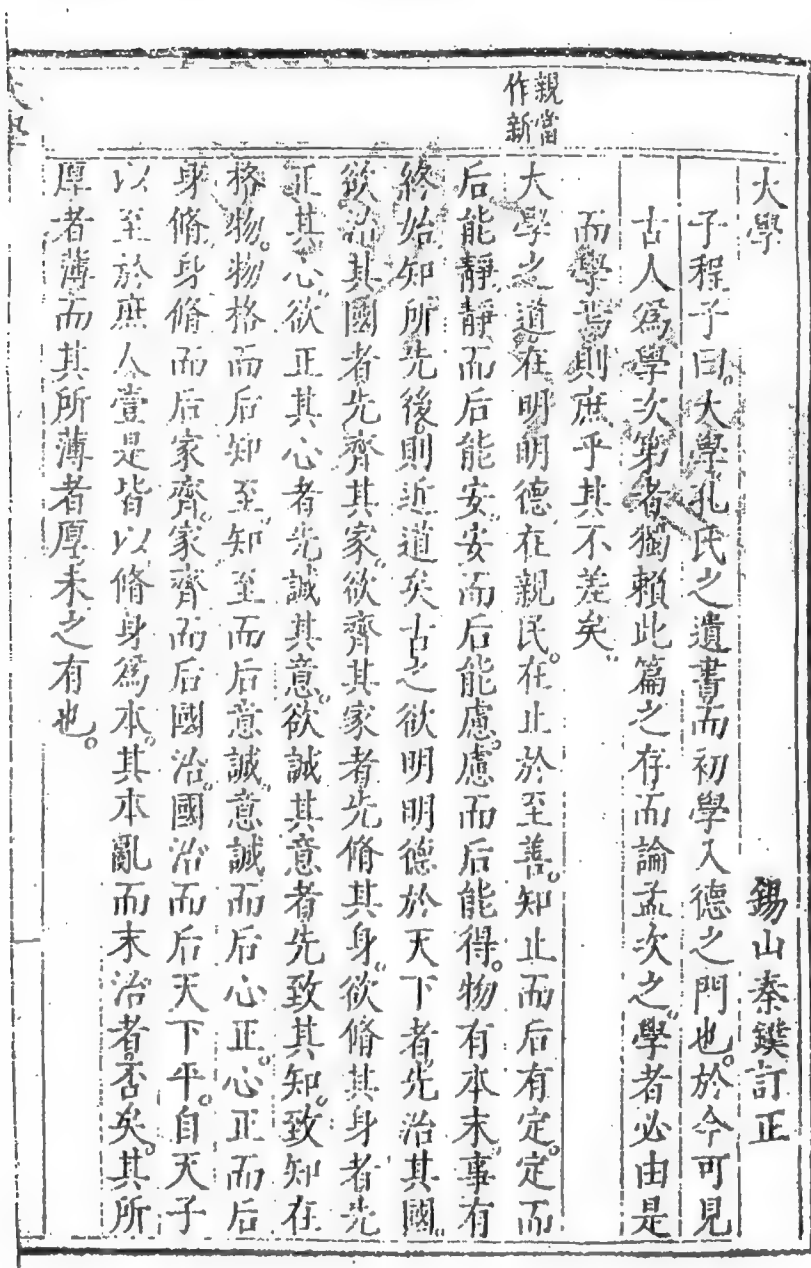 大學
錫山秦鏷訂正
子程子曰。大學孔氏之遺書而初學入德之門也。於今可見
古人爲學次第者獨賴此篇之存而論孟次之。學者必由是
而學焉則庶乎其不差矣。
親當
作新
大學之道在明明德。在親民。在止於至善。知止而后有定。定而
后能靜。靜而后能安。安而后能慮。慮而后能得。物有本末。事有
終始知所先後。則近道矣古之欲明明德於天下者。先治其國。
欲治其國者先齊其家。欲齊其家者先脩其身。欲脩其身者先
正其心。欲正其心者先誠其意。欲誠其意者先致其知。致知在
格物。物格而后知至。知至而后意誠。意誠而后心正。心正而后
身脩。身脩而后家齊。家齊而后國治。國治而后天下平。自天子
以至於庶人壹是皆以脩身爲本。其本亂而末治者。否矣。其所
厚者薄而其所薄者厚。未之有也。
大學